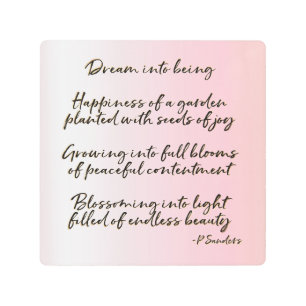 Dream into being
Happiness of a garden
planted with seeds of joy
Growing into full blooms
of peaceful contentment
Blossoming into light
filled of endless beauty
-P Sanders